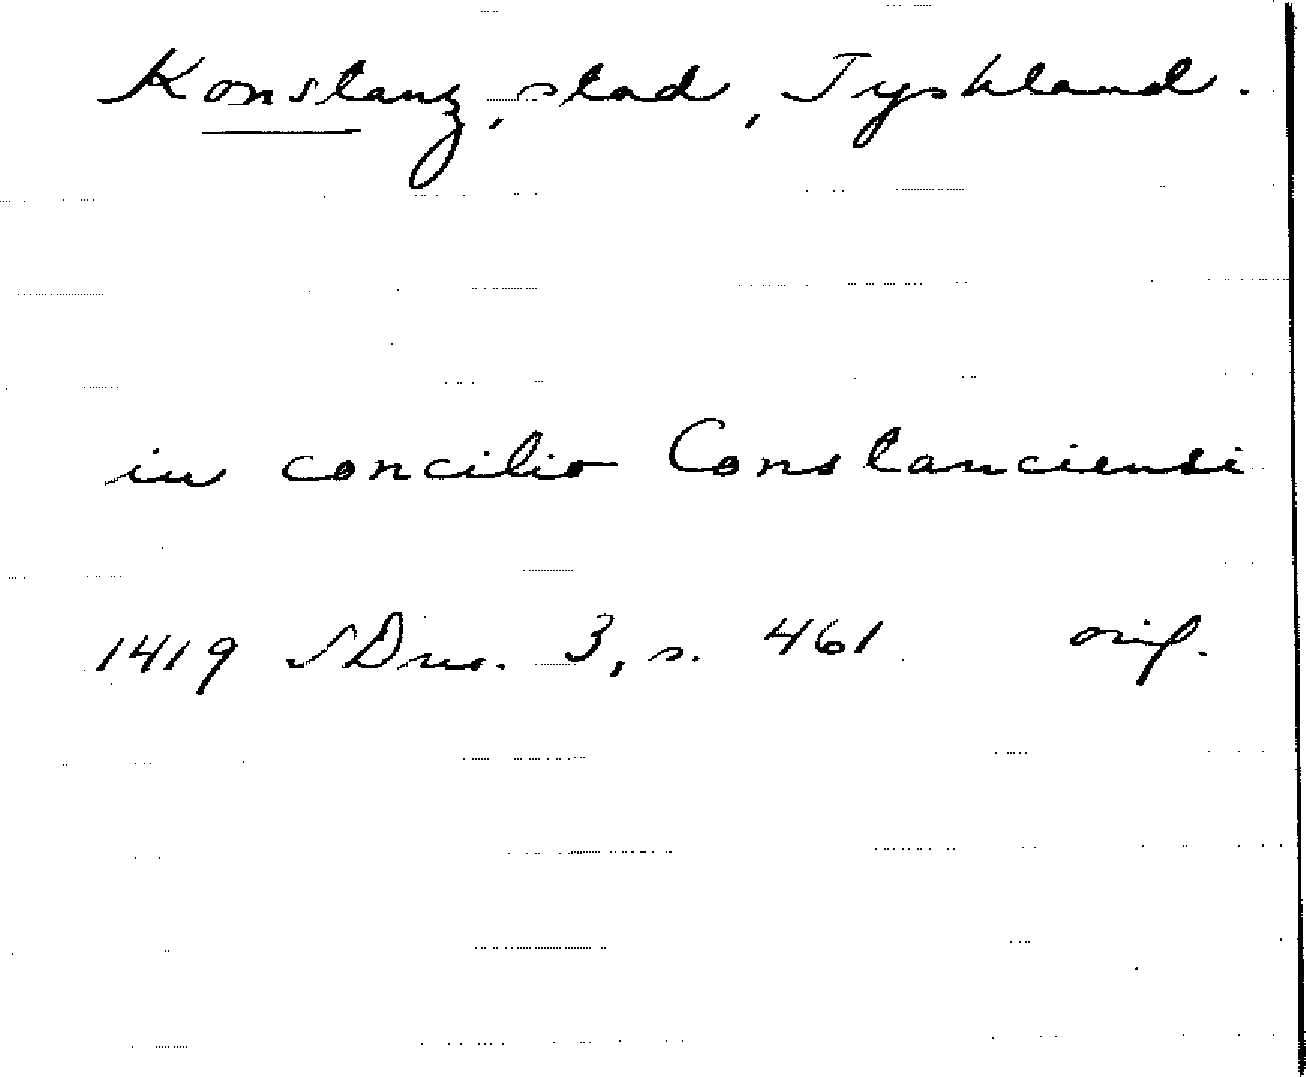 Konstanz, stad, Tyskland.
in concilio Constanciensi
1419 SDns. 3, s. 461 orig.